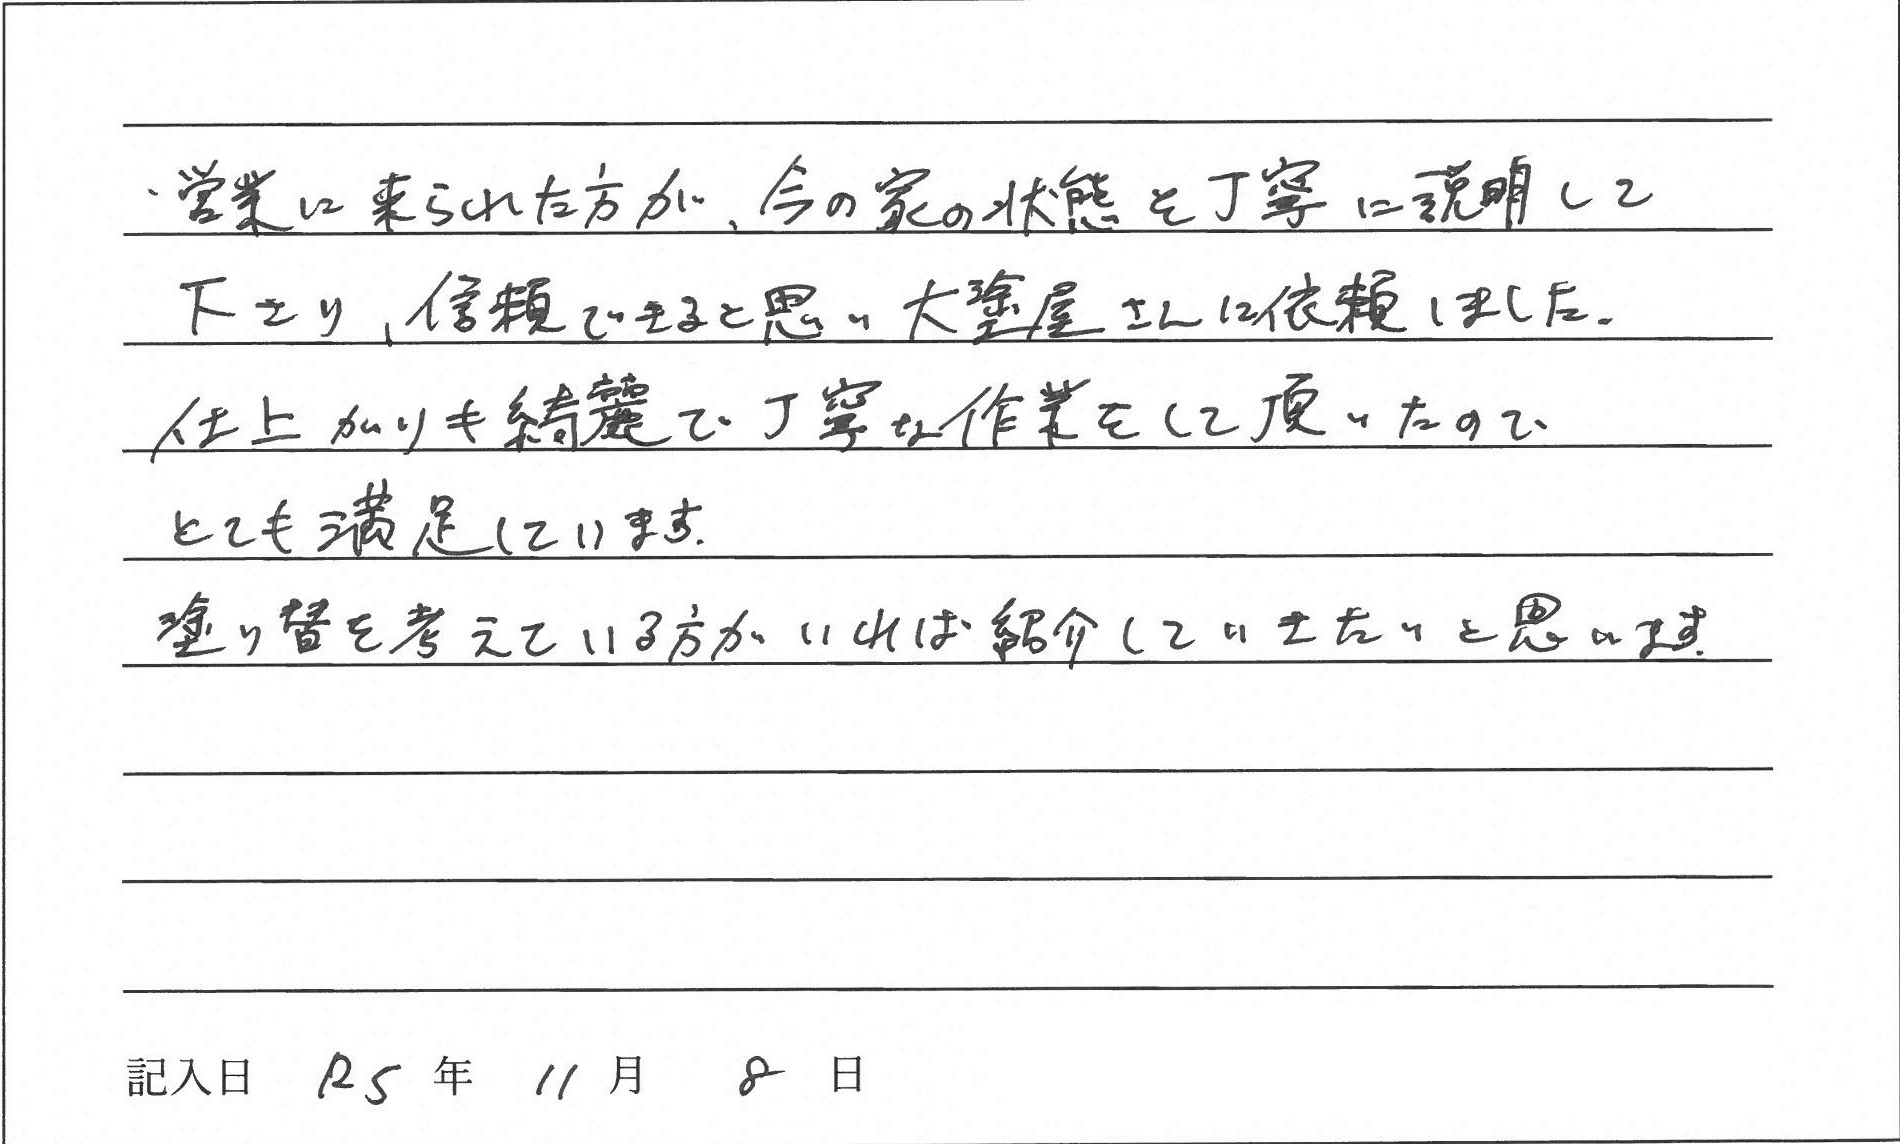 ・営業に来られた方が、今の家の状態を丁寧に説明して
下さり、信頼できると思い大塗屋さんに依頼しました。
仕上がりも綺麗で丁寧な作業をして頂いたので
とても満足しています。
塗り替を考えている方がいれば紹介していきたいと思います。
記入日 R5年 11月 8日